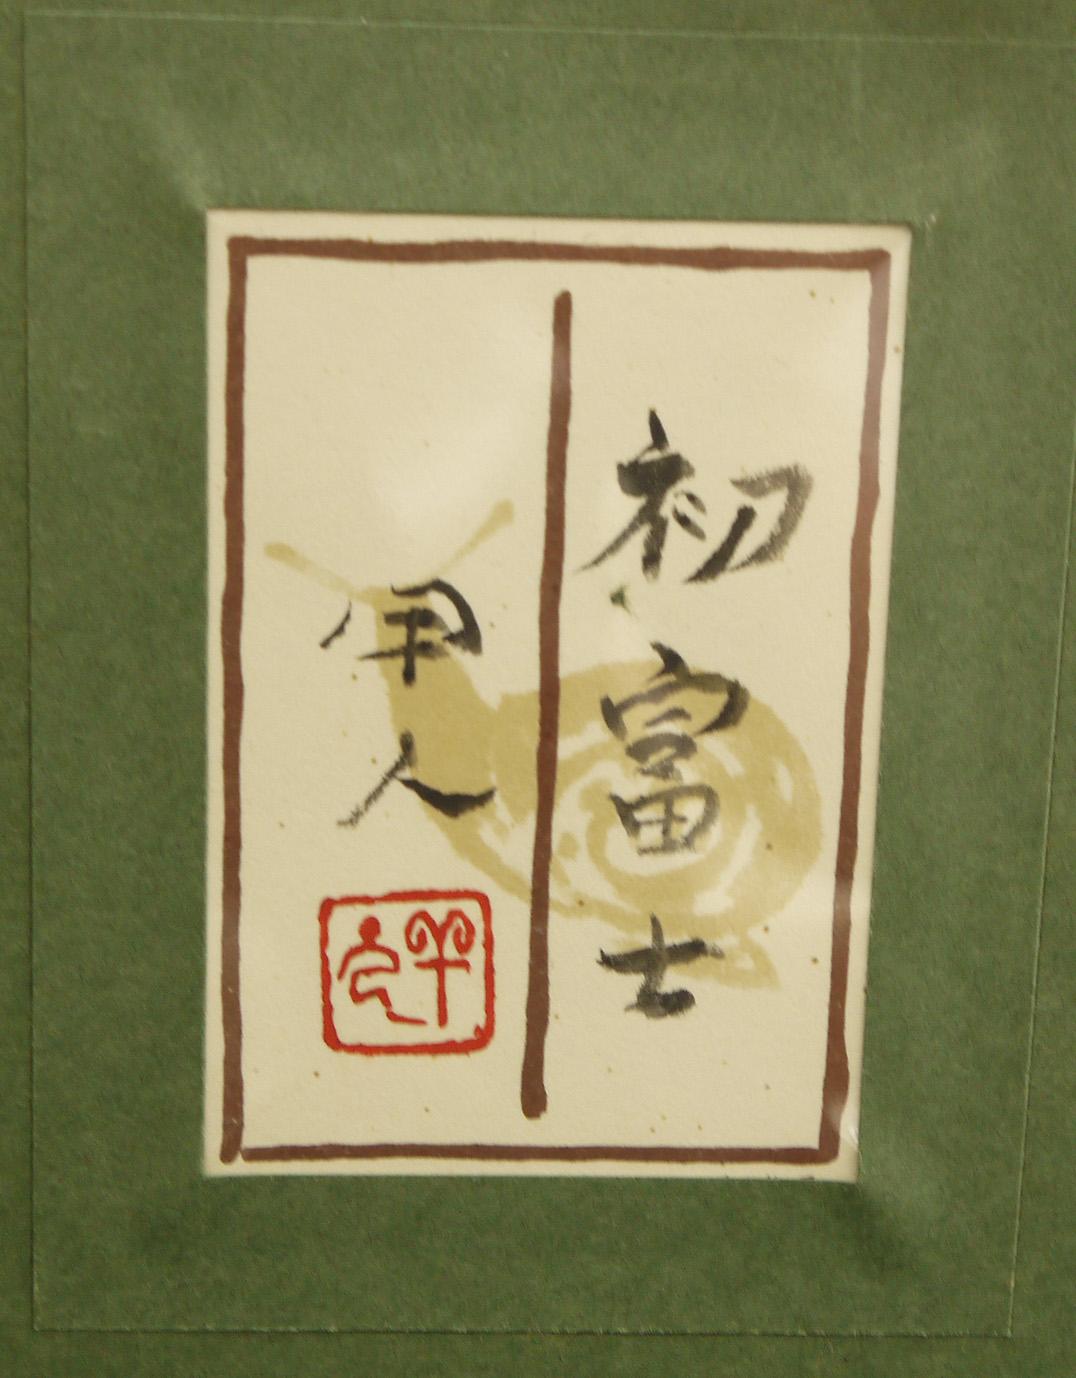 初富士
用人